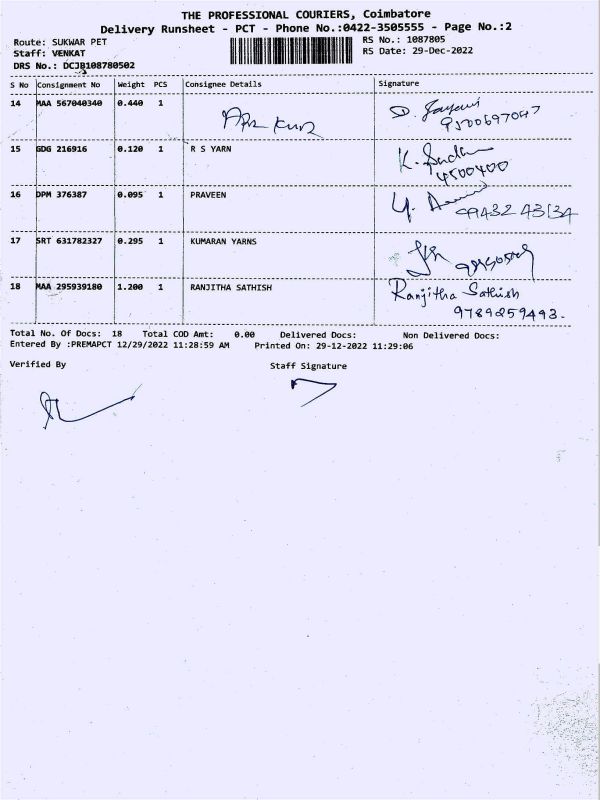 THE PROFESSIONAL COURIERS, Coimbatore
Delivery Runsheet - PCT - Phone No.:0422-3505555 - Page No.:2
Route: SUKWAR PET
RS No.: 1087805
Staff: VENKAT
RS Date: 29-Dec-2022
DRS No.: DCJB108780502
S No Consignment No Weight PCS Consignee Details Signature
14 MAA 567040340 0.440 1
15 GDG 216916 0.120 1 R S YARN
16 DPM 376387 0.095 1 PRAVEEN
99432 43134
17 SRT 631782327 0.295 1 KUMARAN YARNS
18 MAA 295939180 1.200 1 RANJITHA SATHISH Ranjitha Sathish
9789259493.
Total No. Of Docs: 18 Total COD Amt: 0.00 Delivered Docs: Non Delivered Docs:
Entered By :PREMAPCT 12/29/2022 11:28:59 AM Printed On: 29-12-2022 11:29:06
Verified By Staff Signature